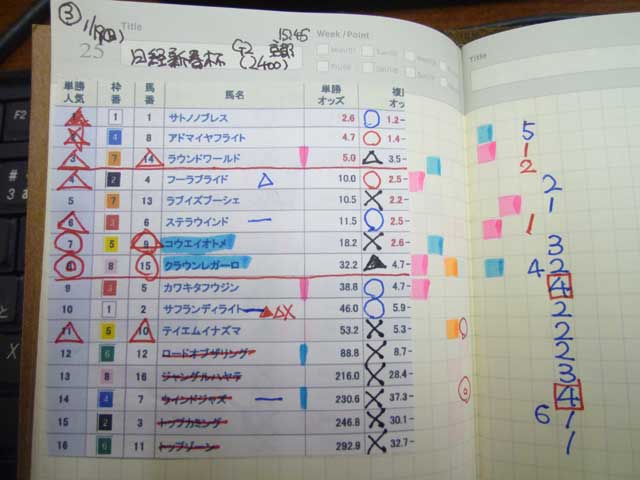 Title
Week / Point
Title
③ 1/19(日) 15:45
25 日経新春杯 G2 京都 (2400)
単勝人気 枠番 馬番 馬名 単勝オッズ 複
1 1 サトノノブレス 2.6 1.2-
4 8 アドマイヤフライト 4.7 1.4-
3 7 14 ラウンドワールド 5.0 3.5-
4 2 4 フーラブライド 10.0 2.5-
5 7 13 ラブイズブーシェ 10.5 2.2-
6 3 6 ステラウインド 11.5 2.5-
7 5 9 コウエイオトメ 18.2 2.6-
8 8 15 クランモンタナ 32.2 4.7-
9 3 5 カワキタフウジン 38.8 4.7-
10 1 2 サフランディライト 46.0 5.9-
11 5 10 テイエムイナズマ 53.2 5.3-
12 6 12 88.8 8.7-
13 8 16 216.0 28.4-
14 4 7 230.6 37.3-
15 2 3 トップカミング 246.8 30.1-
16 6 11 トップゾーン 292.9 32.7-
5
1
2
2
1
1
3
4 2
4
2
2
2
3
4
6 1
1
F2
X